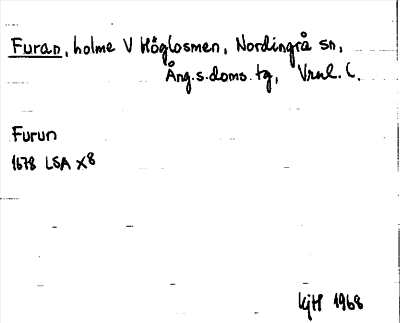 Furan, holme V Höglosmen, Nordingrå sn,
Ång. s. doms. tg, Vrnl. L.
Furun
1678 LSA X8
KjH 1968